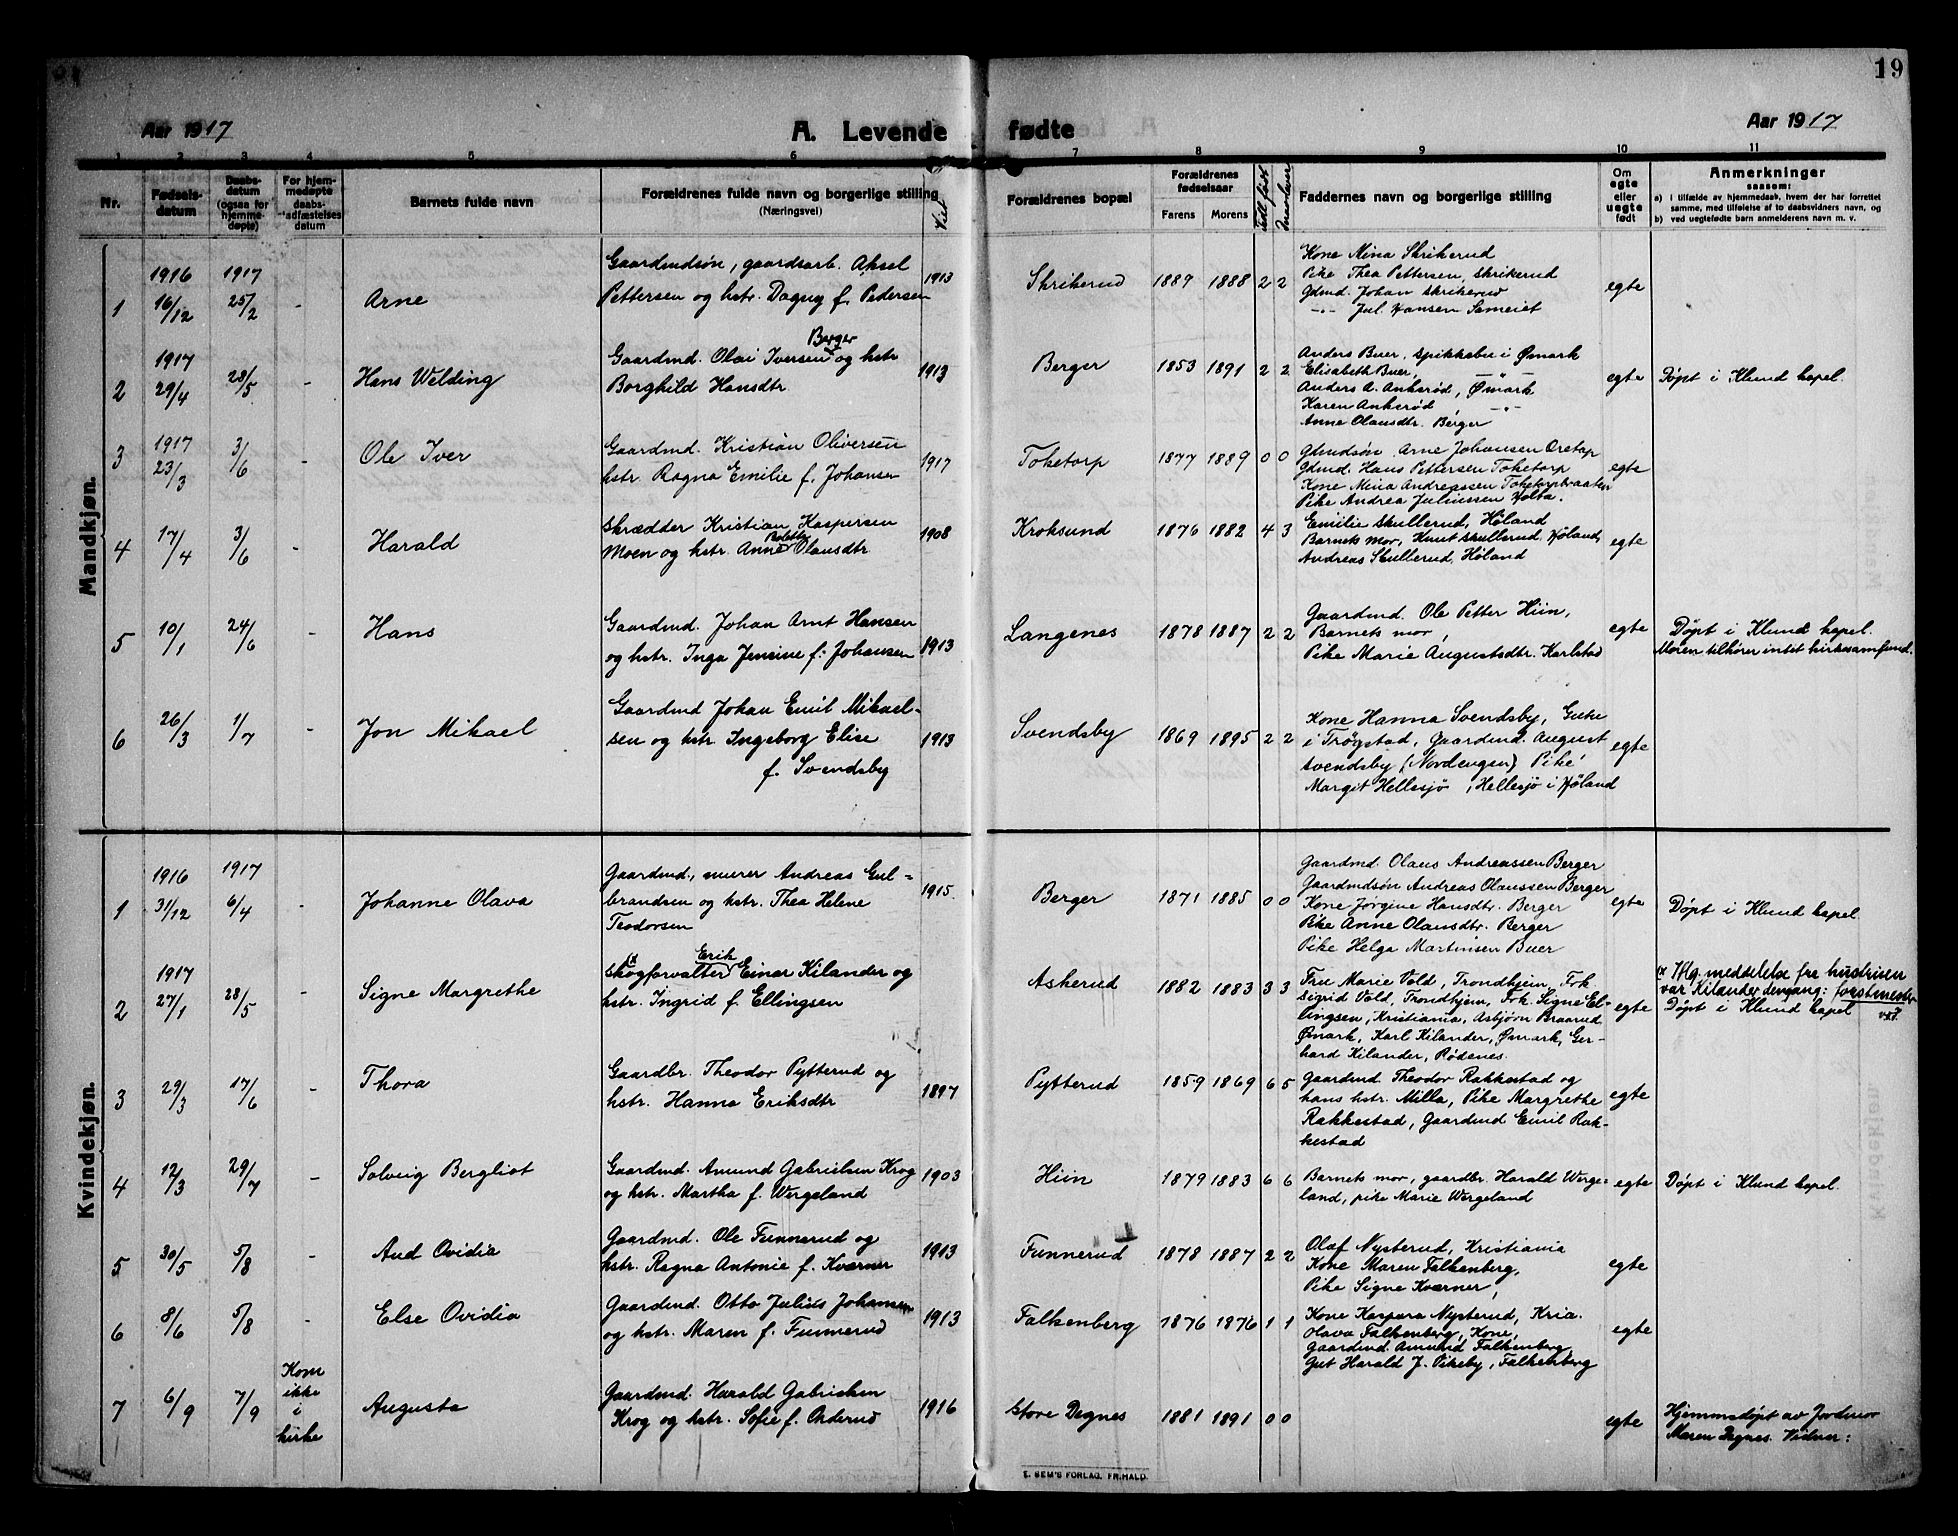 19
Aar 1917
A. Levende fødte
Aar 1917
1 2 3 4 5 6 7 8 9 10 11
Nr.
Fødselsdatum
Daabsdatum (ogsaa for hjemmedøpte)
For hjemmedøpte daabs-stadfæstelses datum
Barnets fulde navn
Forældrenes fulde navn og borgerlige stilling
(Næringsvei)
Viet
Forældrenes bopæl
Forældrenes fødselsaar
Farens Morens
Faddernes navn og borgerlige stilling
Om egte eller uegte født
Anmerkninger
saasom:
a) i tilfælde av hjemmedaab, hvem der har forrettet
samme, med tilføielse af to daabsvidners navn, og
b) ved uegtefødte barn anmelderens navn m. v.
Mandkjøn.
1 1916 16/12 1917 25/2 - Arne
Gaardmdsøn, gaardsarb. Aksel
Pettersen og hstr. Dagny f. Pedersen
1913 Skrikerud 1889 1888 2 2
Kone Mina Skrikerud
Pike Thea Pettersen, Skrikerud
Gdmd. Johan Skrikerud
-"- Jul. Hansen Sameiet
egte
2 1917 29/4 28/5 - Hans Welding
Gaardmd. Olai Iversen Berger og hstr
Borghild Hansdtr
1913 Berger 1853 1891 2 2
Anders Buer, Spikkebu i Ømark
Elisabeth Buer, -"-
Anders A. Ankerød, Ømark
Karen Ankerød, -"-
Anne Olausdtr. Berger
egte Døpt i Klund kapel.
3 1917 23/3 3/6 - Ole Iver
Gaardmd. Kristian Oliversen
hstr. Ragna Emilie f. Johansen
1917 Toketorp 1877 1889 0 0
Gmdsøn Arne Johansen Oretop
Gdmd. Hans Pettersen Toketorp
Kone Mina Andreassen Toketorpbraaten
Pike Andrea Juliussen Holta.
egte
4 17/4 3/6 - Harald
Skrædder Kristian Kaspersen
Moen og hstr. Anne Bolette Olausdtr
1908 Kroksund 1876 1882 4 3
Emilie Skullerud, Høland
Barnets mor, Knut Skullerud, Høland,
Andreas Skullerud, Høland
egte
5 10/1 24/6 - Hans
Gaardmd. Johan Arnt Hansen
og hstr. Inga Jensine f. Johansen
1913 Langenes 1878 1887 2 2
Gaardmd. Ole Petter Hiin,
Barnets mor,
Pike Marie Augustsdtr. Karlstad
egte Døpt i Klund kapel.
Moren tilhører intet kirkesamfund.
6 26/3 1/7 - Jon Mikael
Gaardmd Johan Emil Mikael-
sen og hstr. Ingeborg Elise
f. Svendsby
1913 Svendsby 1869 1895 2 2
Kone Hanna Svendsby,
i Trøgstad, Gaardmd. August
Svendsby (Nordengen) Pike
Margit Hellesjø, Hellesjø i Høland
egte
Kvindekjøn.
1 1916 31/12 1917 6/4 - Johanne Olava
Gaardmd., murer Andreas Gul-
brandsen og hstr. Thea Helene
Teodorsen
1915. Berger 1871 1885 0 0
Gaardmd. Olaus Andreassen Berger
Gaardmdsøn Andreas Olaussen Berger
Kone Jørgine Hansdtr. Berger
Pike Anne Olausdtr. Berger
Pike Helga Martinsen Buer
egte Døpt i Klund kapel.
2 1917 27/1 28/5 - Signe Margrethe
Skogforvalter x Erik Einar Kilander og
hstr. Ingrid f. Ellingsen
Askerud 1882 1883 3 3
Fru Marie Vold, Trondhjem, Frk.
Sigrid Vold, Trondhjem, Frk. Signe El-
lingsen, Kristiania, Asbjørn Braarud
Ømark, Karl Kilander, Ømark, Ger-
hard Kilander, Rødenes.
egte
x Iflg. meddelelse fra hustruen
var Kilander dengang: forstmester
Døpt i Klund kapel
3 29/3 17/6 - Thora
Gaardbr. Theodor Pytterud og
hstr. Hanna Eriksdtr
1897 Pytterud 1859 1869 6 5
Gaardmd Theodor Rakkestad og
hans hstr. Milla, Pike Margrethe
Rakkestad, Gaardmd Emil Rak-
kestad
egte
4 12/3 29/7 - Solveig Bergliot
Gaardmd. Amund Gabrielsen Krog
og hstr. Martha f. Wergeland
1903 Hiin 1879 1883 6 6
Barnets mor, gaardbr. Harald Werge-
land, pike Marie Wergeland
egte Døpt i Klund kapel.
5 30/5 5/8 - Aud Ovidia
Gaardmd. Ole Funnerud og
hstr. Ragna Antonie f. Kværner
1913 Funnerud 1878 1887 2 2
Olaf Nysterud, Kristiania
Kone Maren Falkenberg,
Pike Signe Kværner,
egte
6 8/6 5/8 - Else Ovidia
Gaardmd. Otto Julius Johansen
og hstr. Maren f. Funnerud
1913 Falkenberg 1876 1876 1 1
Kone Kaspara Nysterud, Kria.
Olava Falkenberg, Kone,
Gaardmd. Amund Falkenberg
Gut Harald J. Vikeby, Falkenberg
egte
7 6/9 7/9 Kom ikke i kirke Augusta
Gaardmd. Harald Gabrielsen
Krog og hstr. Sofie f. Orderud
1916 Store Degnes 1881 1891 0 0
egte Hjemmedøpt av Jordmor
Maren Degnes. Vidner:
E. SEM'S FORLAG, FR.HALD.